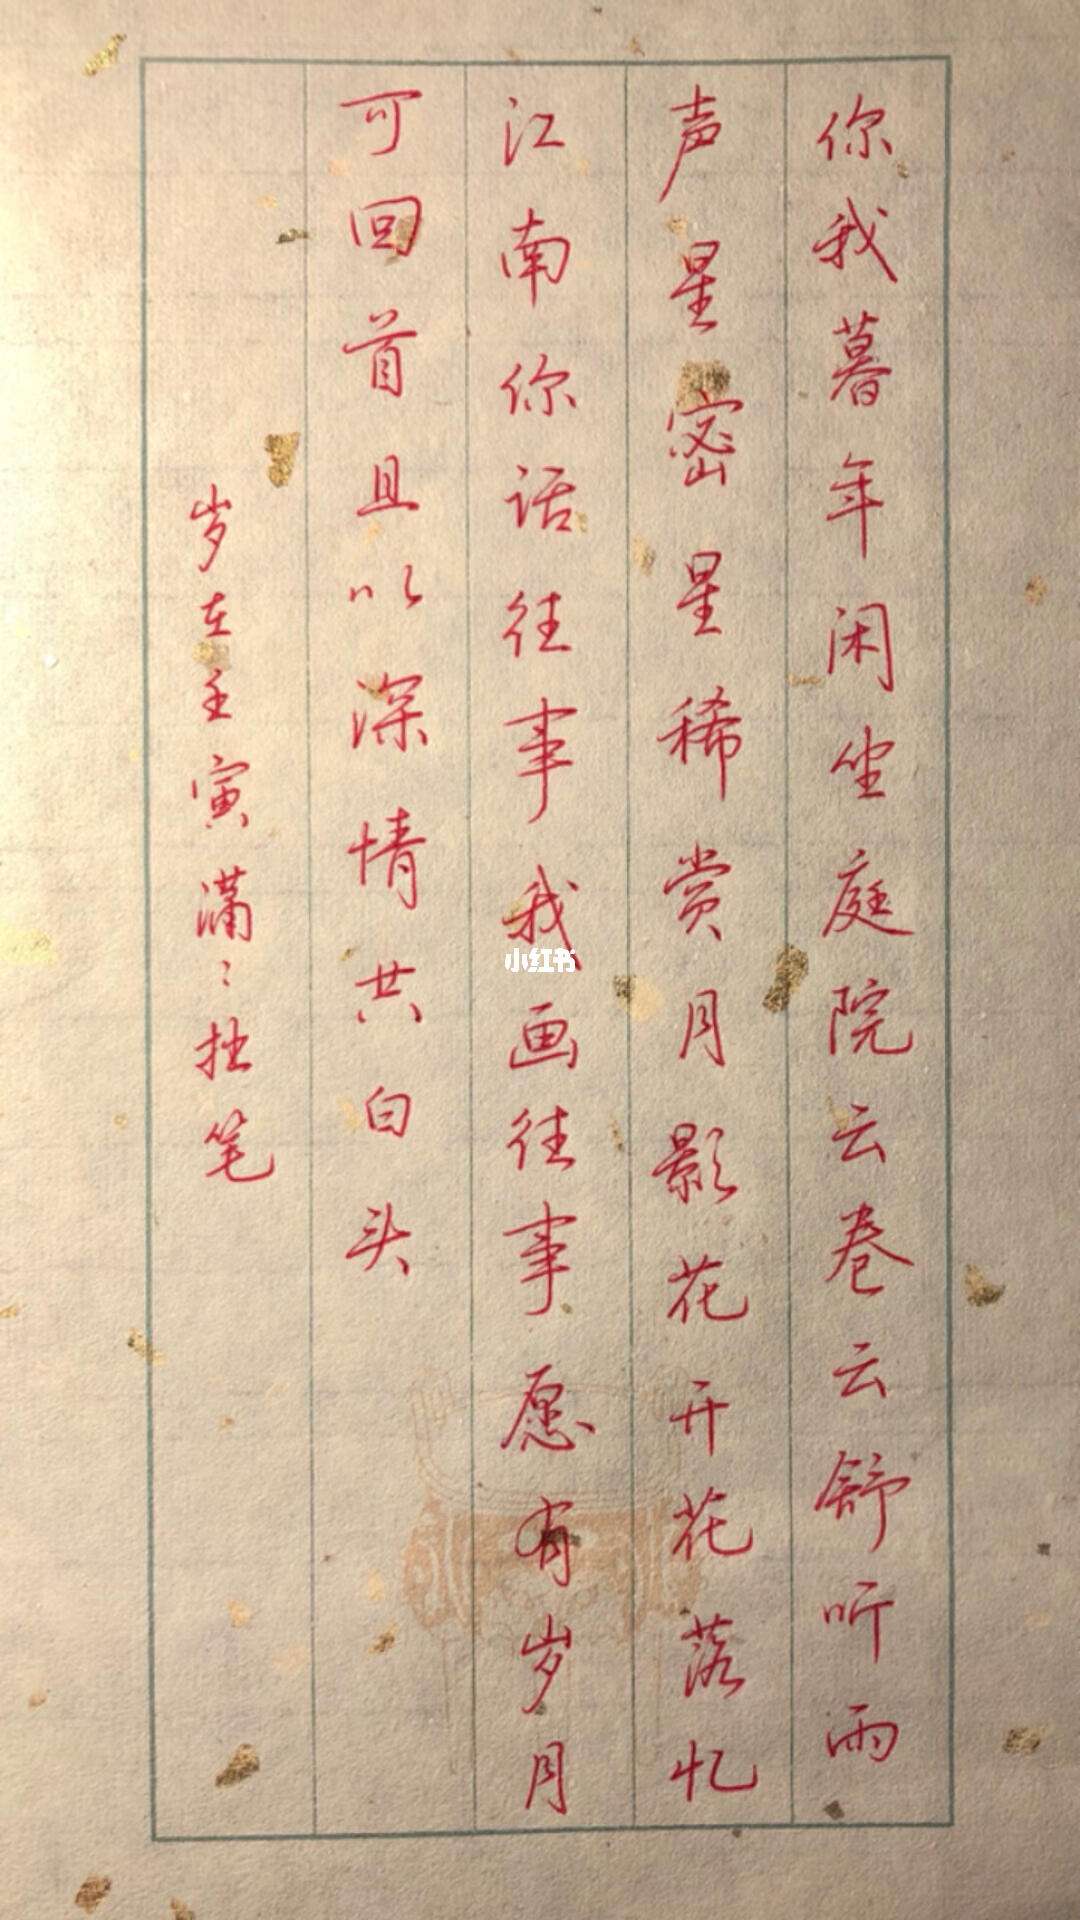 你我暮年闲坐庭院云卷云舒听雨
声星密星稀赏月影花开花落忆
江南你话往事我画往事愿有岁月
可回首且以深情共白头
岁在壬寅潇〻拙笔
小红书